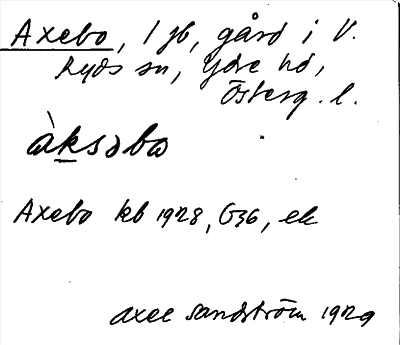 Axebo, 1 jb, gård i V.
Ryds sn, Ydre hd,
Österg. l.
àksəba
Axebo kb 1928, G36, ek
Axel Sandström 1929